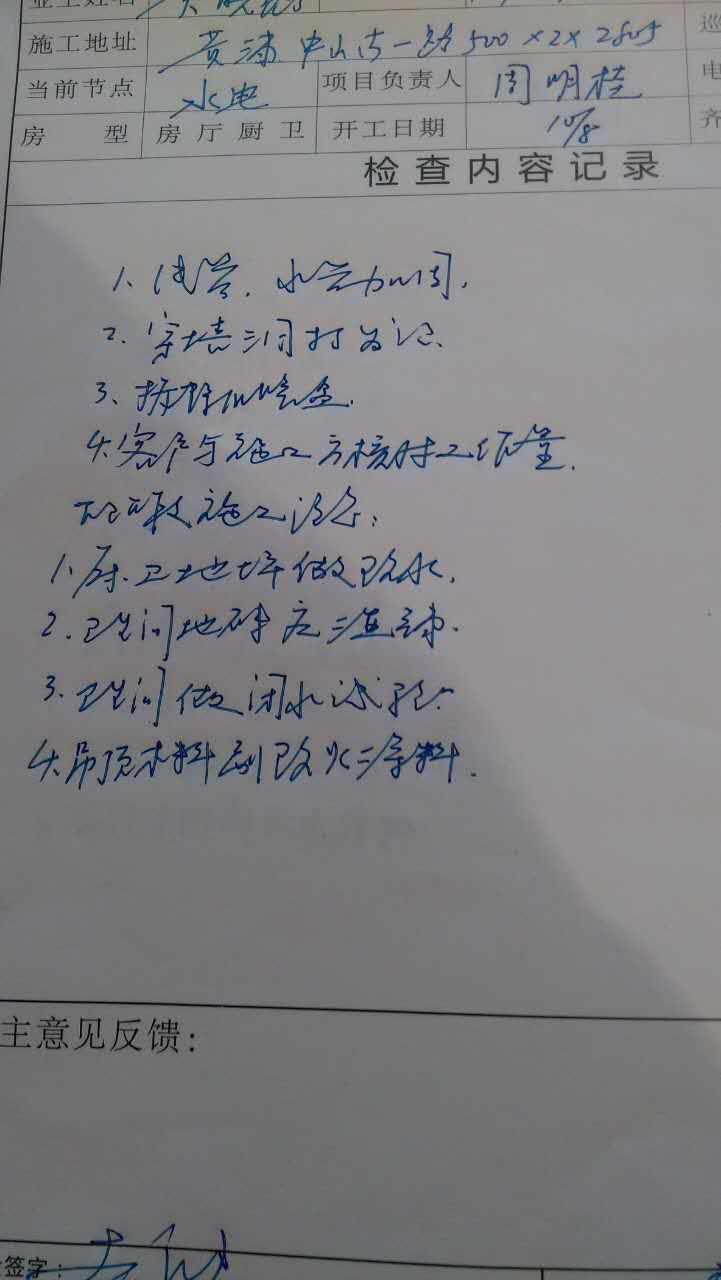 业主姓名
施工地址 黄浦 中山南一路500×2×2805
当前节点 水电 项目负责人 周明桂 电
房 型 房 厅 厨 卫 开工日期 10/8 齐
检查内容记录
1、线管、水管加固.
2、穿墙洞打
3、接线盒.
4、客户与施工方核对工作量.
施工
1、厨、卫地坪做防水.
2、卫生间地砖
3、卫生间做闭水试验.
4、吊顶木料刷防火涂料.
主意见反馈:
签字: